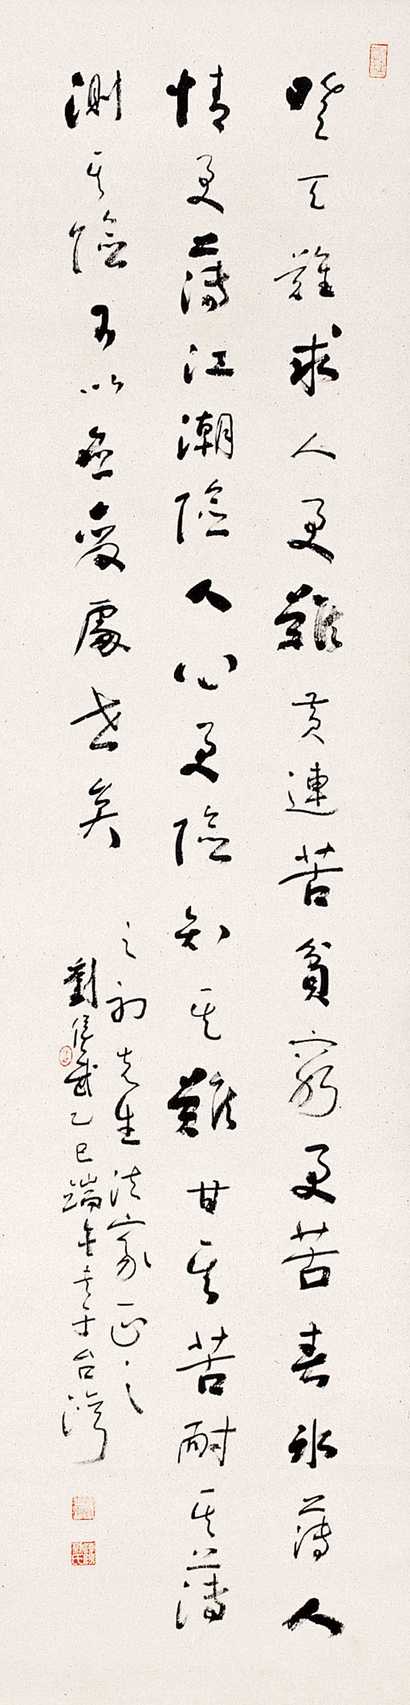 登天難求人更難黃連苦貧窮更苦春冰薄人
情更薄江潮險人心更險知其難甘其苦耐其薄
測其險可以無憂處世矣
之初先生法家正之
劉侯武乙巳端書于台灣